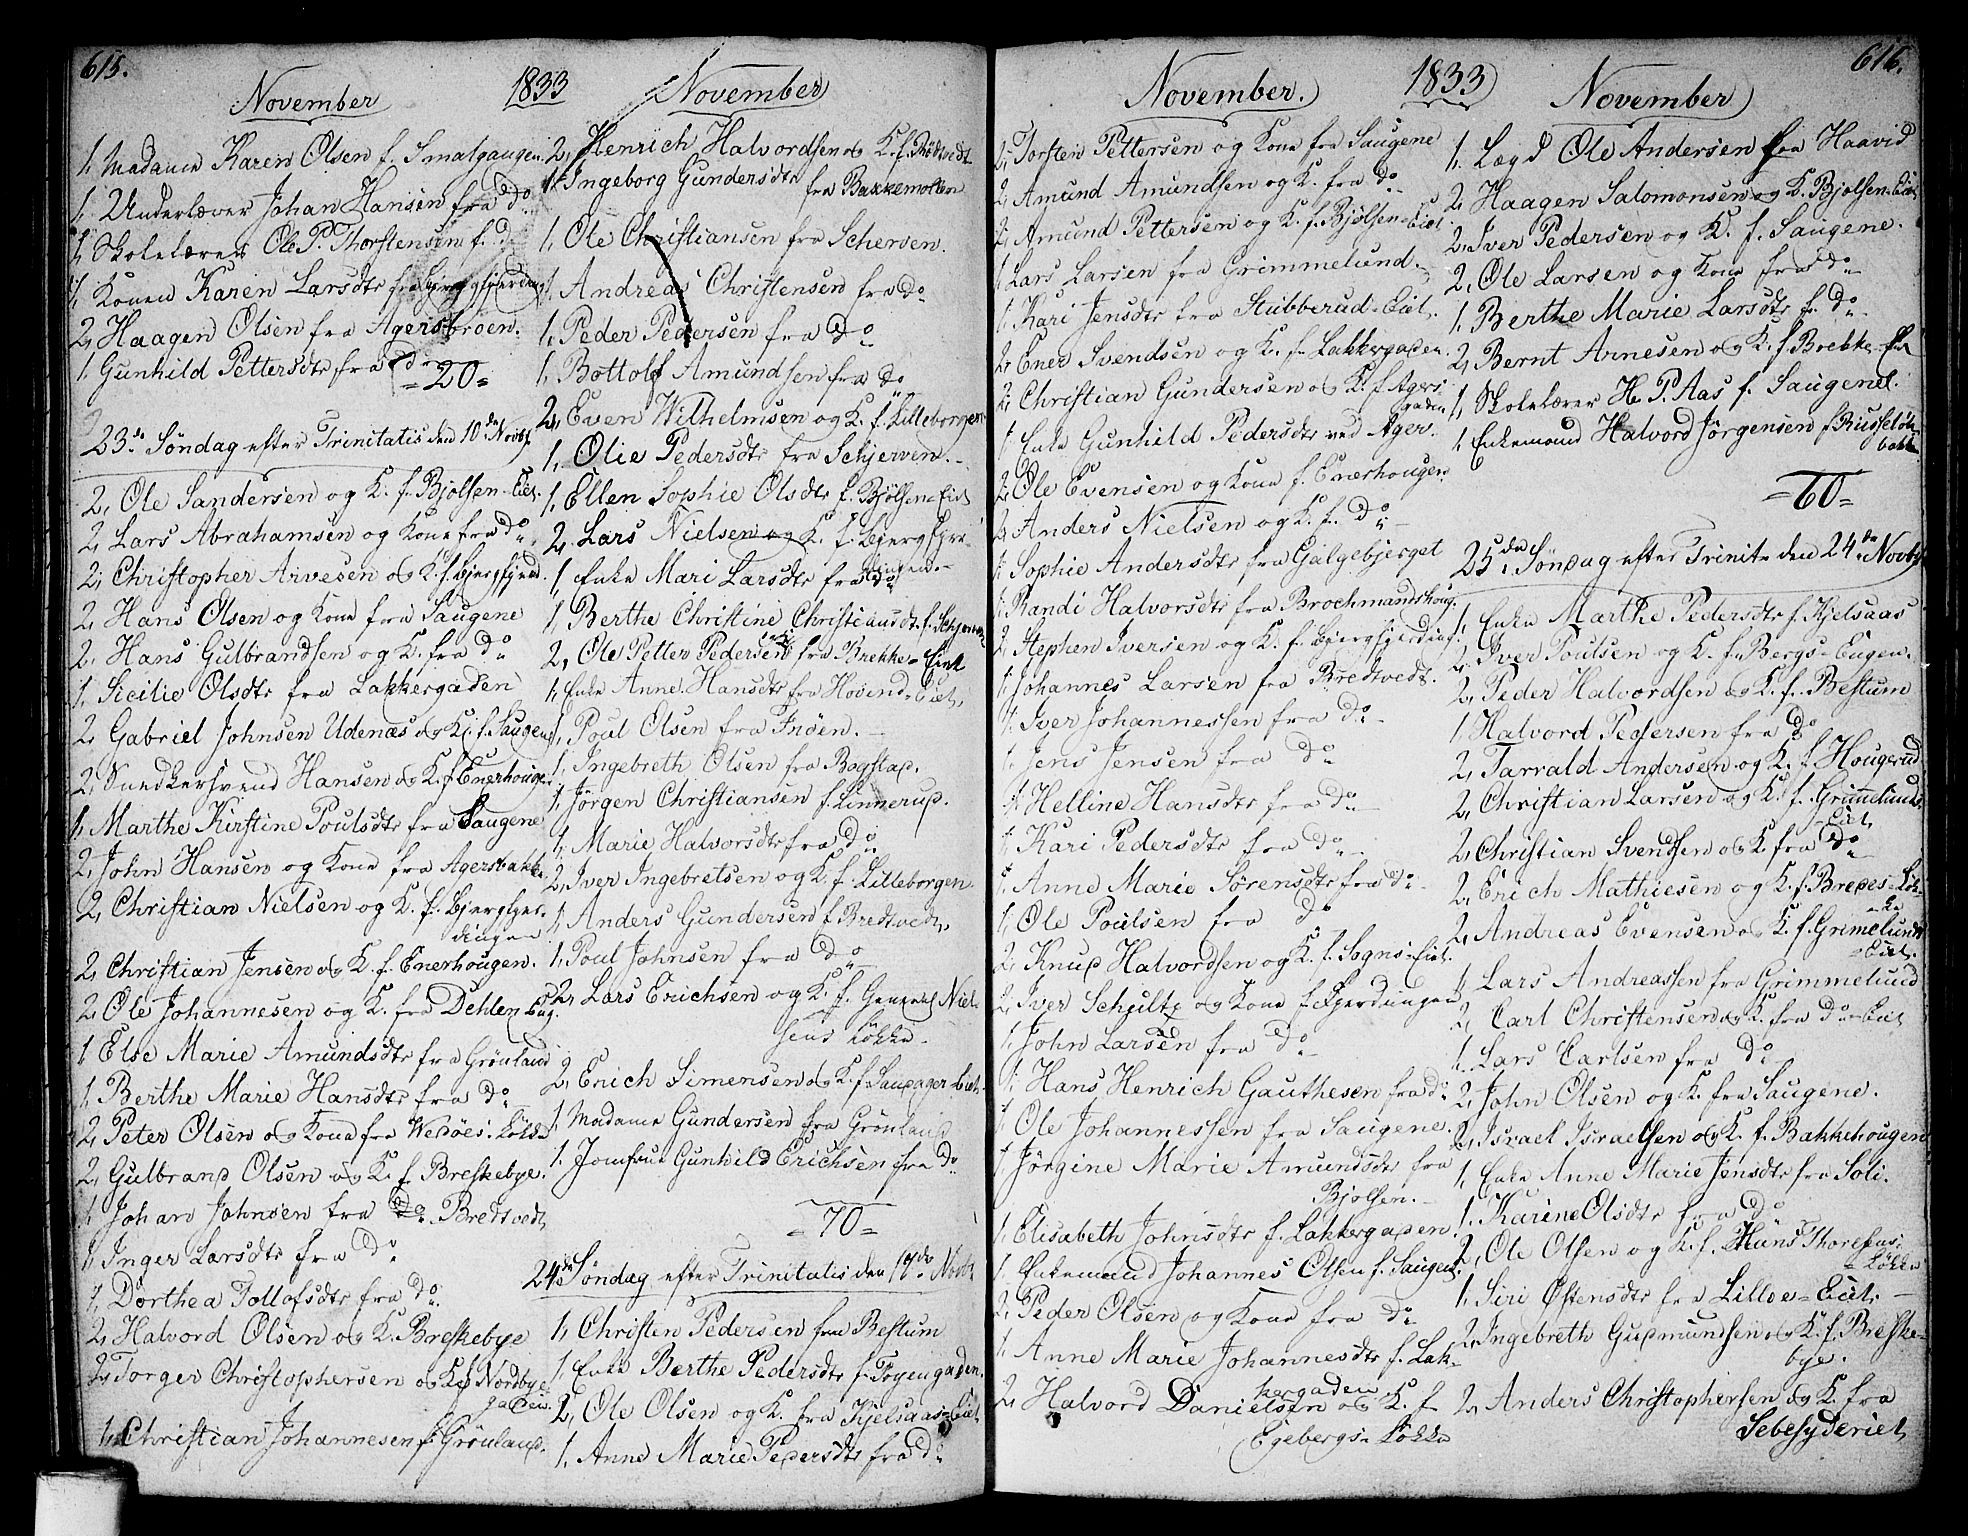 615.
November 1833 November
1, Madame Karen Olsen f. Smalgangen
1, Underlærer Johan Hansen fra do
1, Skolelærer Ole P. Thorstensen f. do
1, Konen Karen Larsdtr fra Bjergfjerding
2, Haagen Olsen fra Agersbroen.
1 Gunhild Pettersdtr fra do
=20=
23de Søndag efter Trinitatis den 10de Novbr
2, Ole Sandersen og K. f. Bjølsen-Eiet.
2, Lars Abrahamsen og Kone fra do
2, Christopher Arvesen og K. f. Bjergfjerd.
2, Hans Olsen og Kone fra Saugene
2, Hans Gulbrandsen og K. fra do
1, Sicilie Olsdtr fra Lakkergaden
2, Gabriel Johnsen Udenæs og K. f. Saugene
2, Snedkersvend Hansen og K. f. Enerhougen
1, Marthe Kirstine Poulsdtr fra Saugene
2, John Hansen og Kone fra Agersbakke
2, Christian Nielsen og K. f. Bjergfjer-
dingen
2, Christian Jensen og K. f. Enerhougen.
2, Ole Johannesen og K. fra Dehlen Eug.
1 Else Marie Amundsdtr fra Grønland
1, Berthe Marie Hansdtr fra do
2, Peter Olsen og Kone fra Wedøes Løkke
2, Gulbrand Olsen og K. f. Breskebye.
1, Johan Johnsen fra do Bredtvedt
1, Inger Larsdtr fra do
1, Dorthea Tollofsdtr fra do
2, Halvord Olsen og K. Breskebye
2, Torger Christophersen og K. f. Nordbye
gaden.
1, Christian Johannesen f. Grønland.
2, Henrich Halvordsen og K. f. Bødtvedt
1 Ingeborg Gundersdtr fra Bakkemosen
1, Ole Christiansen fra Scherven.
1, Andreas Christensen fra do
1, Peder Pedersen fra do
1, Bottolf Amundsen fra do
2, Even Wilhelmsen og K. f. Lilleborgen
1, Olie Pedersdtr fra Schjerven.
1, Ellen Sophie Olsdtr f. Bjølsen-Eiet
2, Lars Nielsen og K. f. Bjergfjer-
dingen
1, Enke Mari Larsdtr fra do
1, Berthe Christine Christiansdtr f. Schjerven
2, Ole Petter Pedersen fra Brekke-Eiet
1, Enke Anne Hansdtr fra Hovind-Eiet,
1, Poul Olsen fra Frøen.
1, Ingebreth Olsen fra Bogstad.
1, Jörgen Christiansen f. Linnerud.
1, Marie Halvorsdtr fra do
2, Iver Ingebretsen og K. f. Lilleborgen
1, Anders Gundersen f. Bredtvedt,
1, Poul Johnsen fra do
2, Lars Erichsen og K. f. General Niel-
sens Løkke
2, Erich Simensen og K. f. Saudager-Eiet.
1, Madame Gundersen fra Grønland
1. Jomfrue Gunhild Erichsen fra do
=70=
24de Søndag efter Trinitatis den 17de Novbr
1, Christen Pedersen fra Bestum
1, Enke Berthe Pedersdtr f. Tøyengaden.
2, Ole Olsen og K. fra Kjelsaas-Eiet
1, Anne Marie Pedersdtr fra do
616.
November. 1833 November
2, Torsten Pettersen og Kone fra Saugene
2, Amund Amundsen og K. fra do
2, Amund Pettersen og K. f. Bjølsen-Eiet
1 Lars Larsen fra Grimmelund.
1, Kari Jensdtr fra Stubberud-Eiet.
2, Ener Svendsen og K. fr. Lakkergaden.
2, Christian Gundersen og K. f. Agers-
gaden
1 Enke Gunhild Pedersdtr ved Ager.
2, Ole Evensen og Kone f. Enerhougen
2, Anders Nielsen og K. f. do
1, Sophie Andersdtr fra Galgebjerget
1, Randi Halvorsdtr fra Brochmandshoug.
2, Stephen Iversen og K. f. Bjergfjerding
1, Johannes Larsen fra Bredtvedt.
1, Iver Johannessen fra do
1, Jens Jensen fra do
1, Helline Hansdtr fra do
1, Kari Pedersdtr fra do
1, Anne Marie Sörensdtr fra do
1, Ole Poulsen fra do
2, Knud Halvordsen og K. f. Sogns-Eiet.
2, Iver Schultz og Kone f. Fjerdingen
1, John Larsen fra do
1, Hans Henrich Gauthesen fra do
1, Ole Johannessen fra Saugene.
1, Jörgine Marie Amundsdtr fra
Bjølsen.
1, Elisabeth Johnsdtr f. Lakkergaden
1. Enkemand Johannes Olsen f. Saugene
2, Peder Olsen og Kone fra do
1, Anne Marie Johannesdtr f. Lak-
kergaden
2, Halvord Danielsen og K. f
Egebergs Løkke
1, Lægd Ole Andersen fra Haavid
2, Haagen Salomonsen og K. Bjølsen-Eiet
2, Iver Pedersen og K. f. Saugene.
2, Ole Larsen og Kone fra do
1, Berthe Marie Larsdtr f. do
2, Bernt Arnesen og K. f. Brekke-Eiet
1, Skolelærer H. P. Aas f. Saugene.
1 Enkemand Halvord Jørgensen f. Russeløk-
bakke
=60=
25de Søndag efter Trinit den 24de Novbr
1, Enke Marthe Pedersdtr f. Kjelsaas
2, Iver Poulsen og K. f. Bergs-Eugen.
2, Peder Halvordsen og K. f. Bestum
1 Halvord Pedersen fra do
2, Tarrald Andersen og K. f. Hougerud
2, Christian Larsen og K. f. Grimmelunds
Eiet,
2, Christian Svendsen og K. fra do
2, Erich Mathiesen og K. f. Bredes-Løk-
ke
2, Andreas Evensen og K. f. Grimelunds
-Eiet.
1, Lars Andreassen fra Grimmelund
2, Carl Christensen og K. fra do-Eiet
1, Lars Carlsen fra do
2, John Olsen og K. fra Saugene.
2, Israel Israelsen og K. f. Bakkehougen
1, Enke Anne Marie Jensdtr fra Soli.
1, Karine Olsdtr fra do
2, Ole Olsen og K. f. Hans Thoresens
-Løkke
1, Siri Østensdtr fra Lilloe-Eiet,
2, Ingebreth Gudmundsen og K. f. Breske-
bye.
2, Anders Christophersen og K. fra
Sebesyderiet,